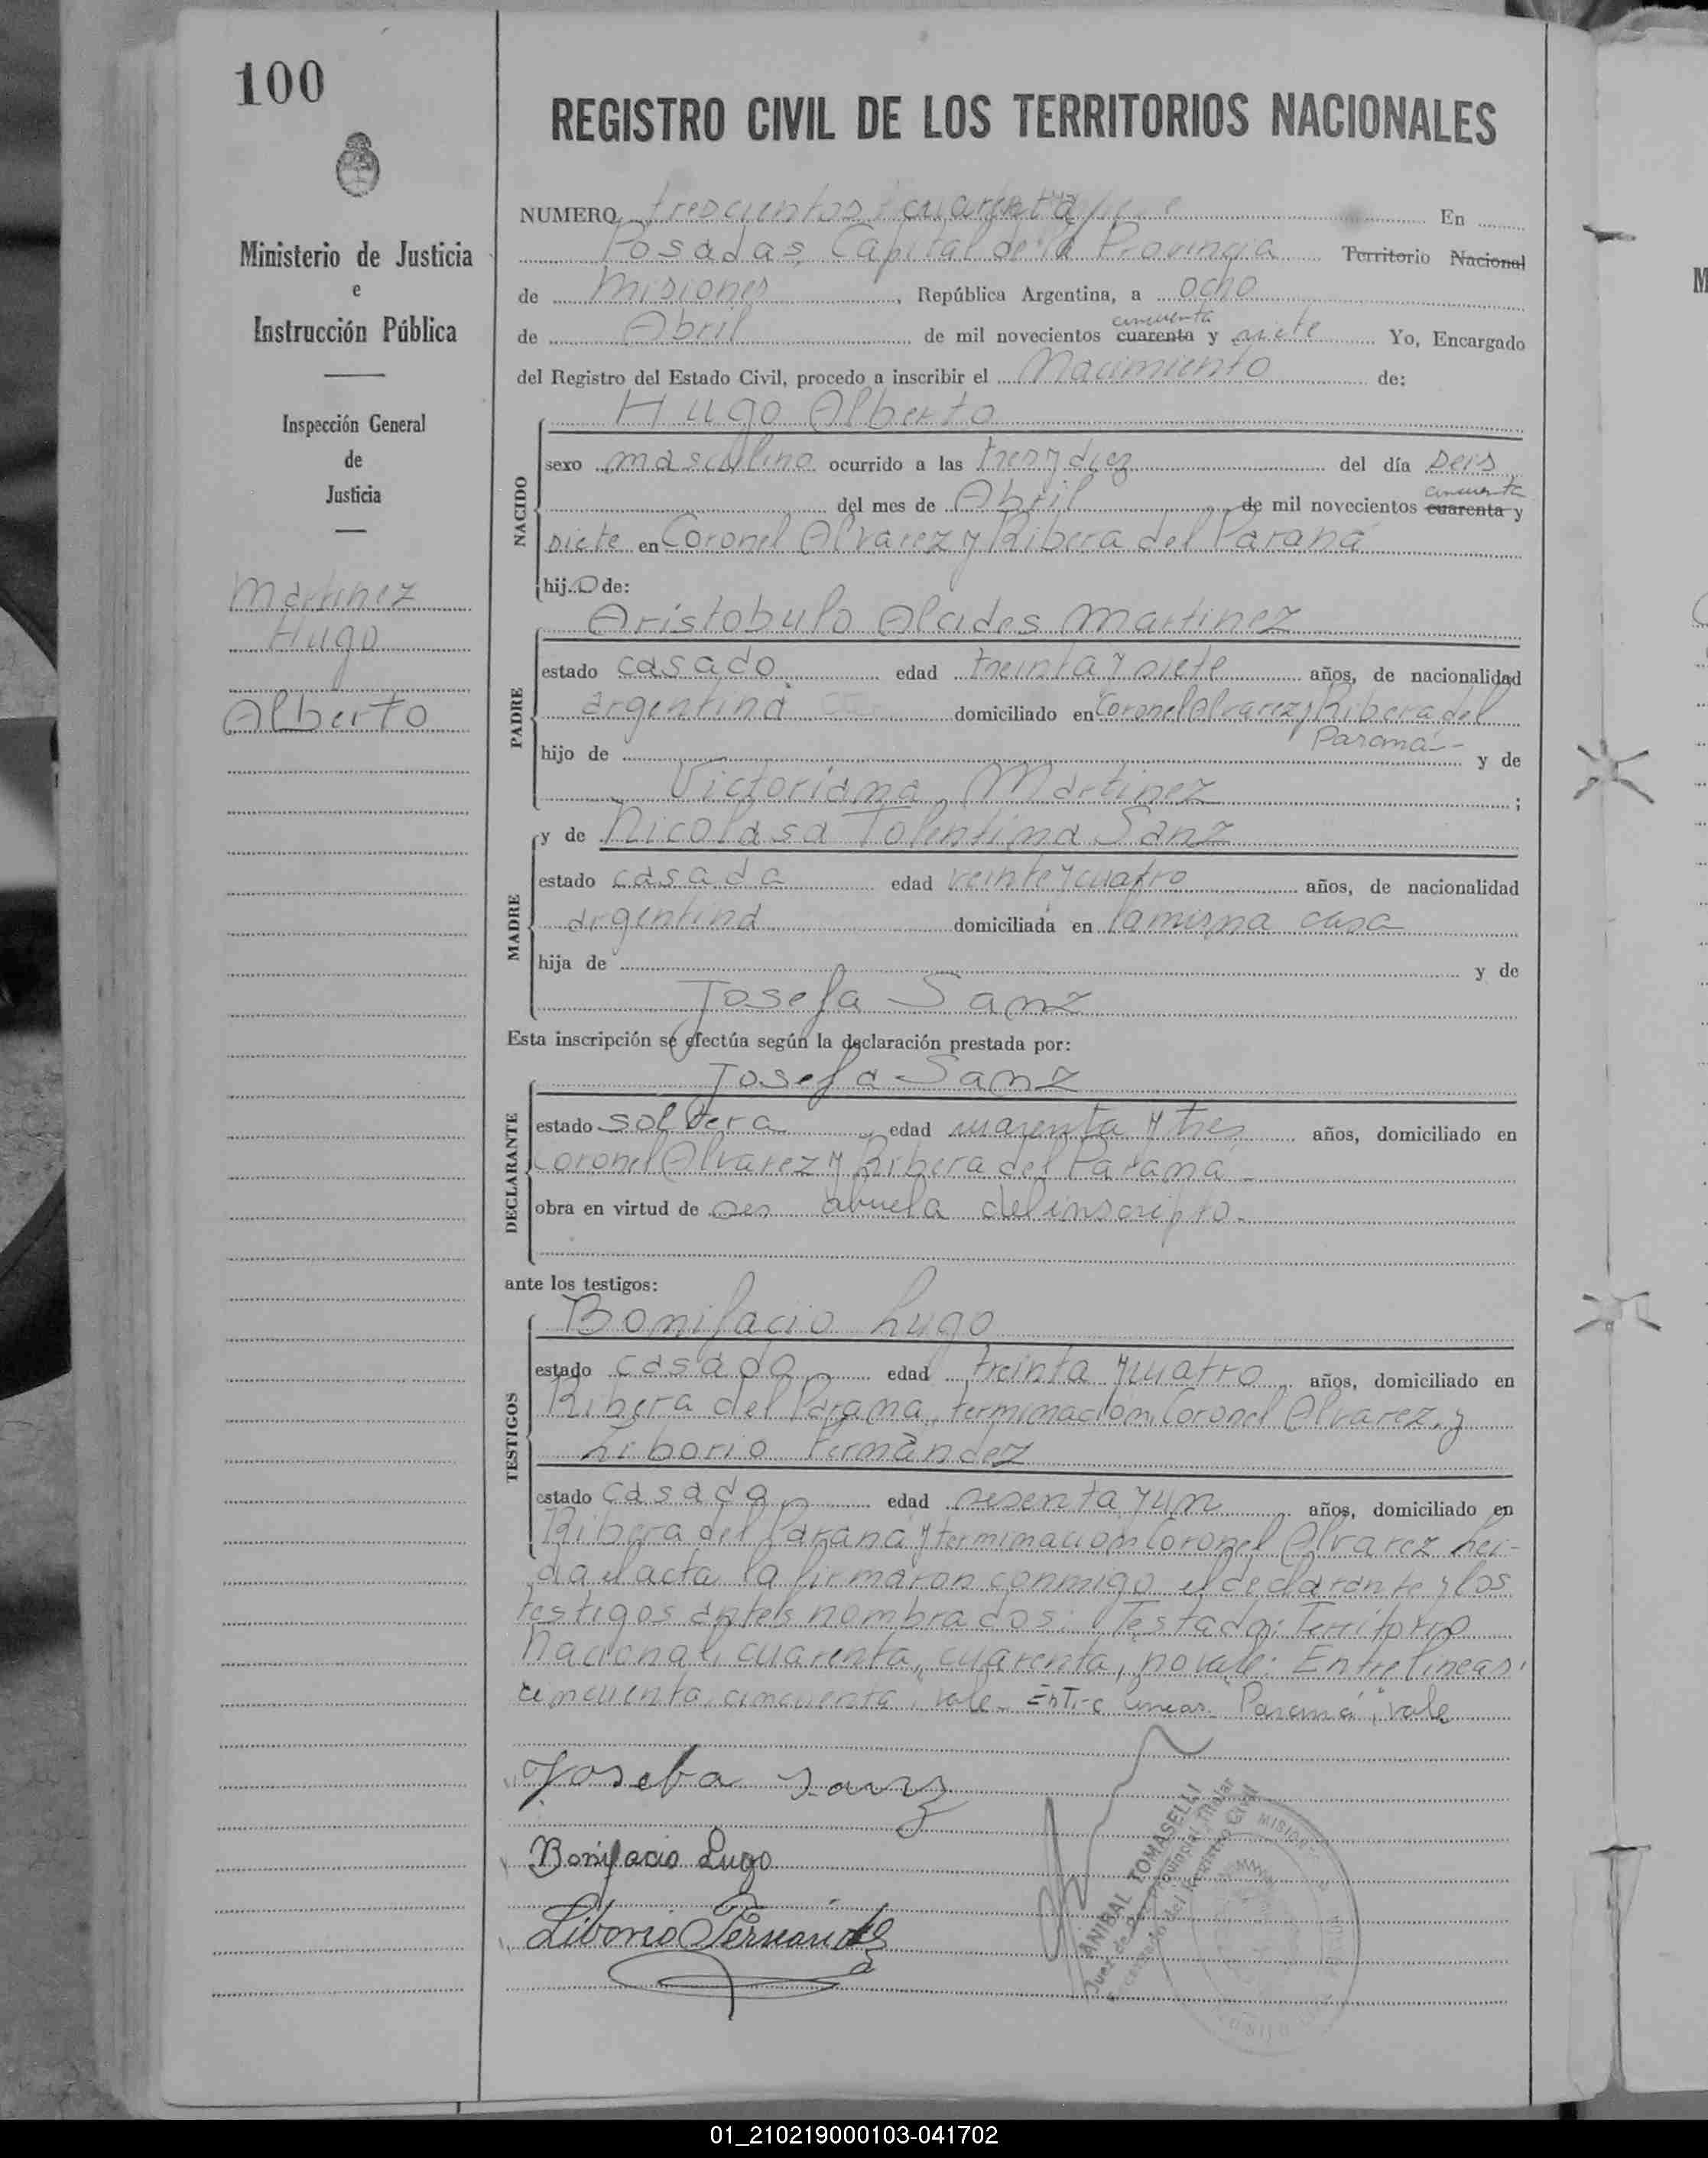 100
REGISTRO CIVIL DE LOS TERRITORIOS NACIONALES
Ministerio de Justicia
e
Instrucción Pública
Inspección General
de
Justicia
Martinez
Hugo
Alberto
NUMERO trescientos cuarenta En
Posadas, Capital de la Provincia Territorio Nacional
de Misiones, República Argentina, a ocho
de Abril de mil novecientos cuarenta cincuenta y siete Yo, Encargado
del Registro del Estado Civil, procedo a inscribir el Nacimiento de:
NACIDO
Hugo Alberto
sexo masculino ocurrido a las tres y diez del día seis
del mes de Abril de mil novecientos cuarenta cincuenta y
siete en Coronel Alvarez y Ribera del Paraná
hijo de:
PADRE
Aristobulo Alcides Martinez
estado casado edad treinta y siete años, de nacionalidad
argentina domiciliado en Coronel Alvarez y Ribera del
Paraná-
hijo de y de
Victoriana Martinez ;
MADRE
y de Nicolasa Tolentina Sanz
estado casada edad veinte y cuatro años, de nacionalidad
argentina domiciliada en la misma casa
hija de y de
Josefa Sanz
Esta inscripción se efectúa según la declaración prestada por:
DECLARANTE
Josefa Sanz
estado soltera edad cuarenta y tres años, domiciliado en
Coronel Alvarez y Ribera del Paraná-
obra en virtud de ser abuela del inscripto-
ante los testigos:
TESTIGOS
Bonifacio Lugo
estado casado edad treinta y cuatro años, domiciliado en
Ribera del Parana, terminacion Coronel Alvarez, y
Liborio Fernández
estado casado edad sesenta y un años, domiciliado en
Ribera del Parana y terminacion Coronel Alvarez Lei-
da el acta la firmaron conmigo el declarante y los
testigos antes nombrados: Testado: Territorio
Nacional, cuarenta, cuarenta, no vale: Entre lineas:
cincuenta, cincuenta, vale- Entre lineas- Paraná, vale
Josefa Sanz
Bonifacio Lugo
Liborio Fernández
ANIBAL TOMASELLI
Juez de Paz Provincial Titular
Encargado del Registro Civil
MISIONES
01_210219000103-041702